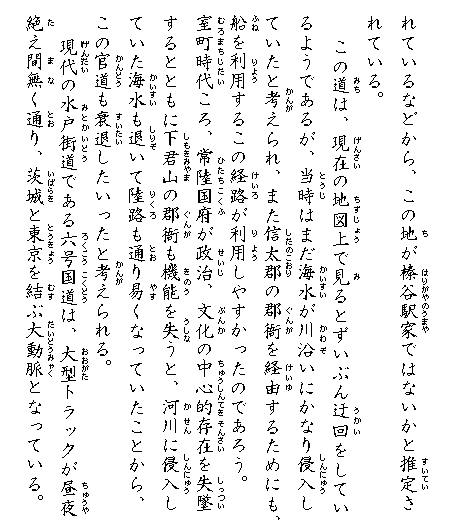 れているなどから、この地が榛谷駅家ではないかと推定さ
れている。
この道は、現在の地図上で見るとずいぶん迂回をしてい
るようであるが、当時はまだ海水が川沿いにかなり侵入し
ていたと考えられ、また信太郡の郡衙を経由するためにも、
船を利用するこの経路が利用しやすかったのであろう。
室町時代ころ、常陸国府が政治、文化の中心的存在を失墜
するとともに下君山の郡衙も機能を失うと、河川に侵入し
ていた海水も退いて陸路も通り易くなっていたことから、
この官道も衰退したいったと考えられる。
現代の水戸街道である六号国道は、大型トラックが昼夜
絶え間無く通り、茨城と東京を結ぶ大動脈となっている。